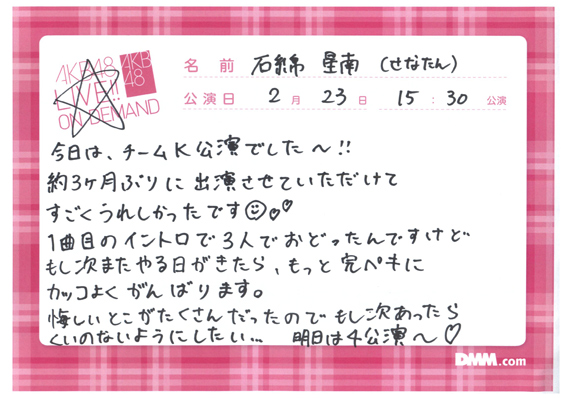 AKB48
LIVE!!
ON DEMAND
AKB
48
名前 石綿 星南 (せなたん)
公演日 2月 23日 15:30 公演
今日は、チームK公演でした〜!!
約3ヶ月ぶりに出演させていただけて
すごくうれしかったです☺♡♡
1曲目のイントロで3人でおどったんですけど
もし次またやる日がきたら、もっと完ペキに
カッコよくがんばります。
悔しいとこがたくさんだったのでもし次あったら
くいのないようにしたい… 明日は4公演〜♡
DMM.com